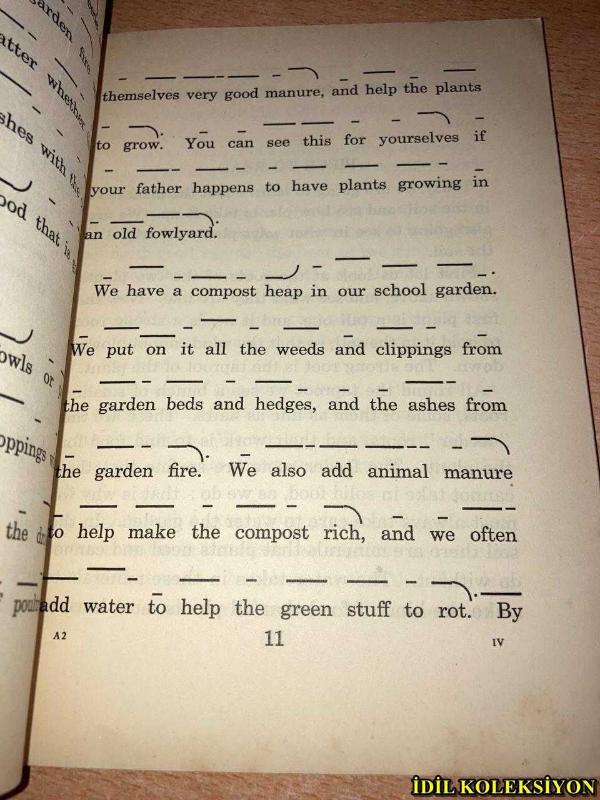 themselves very good manure, and help the plants
to grow. You can see this for yourselves if
your father happens to have plants growing in
an old fowlyard.
We have a compost heap in our school garden.
We put on it all the weeds and clippings from
the garden beds and hedges, and the ashes from
the garden fire. We also add animal manure
to help make the compost rich, and we often
add water to help the green stuff to rot. By
A2
11
IV
İDİL KOLEKSİYON